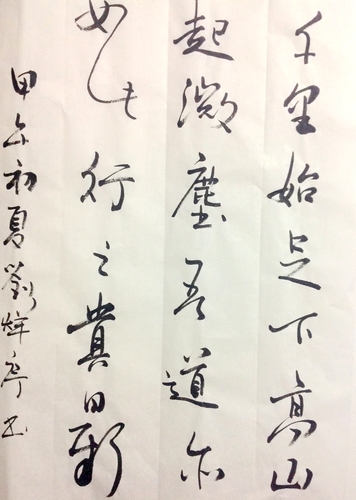 千里始足下高山
起微塵吾道亦
如此行之貴日新
甲午初夏劉輝亭书